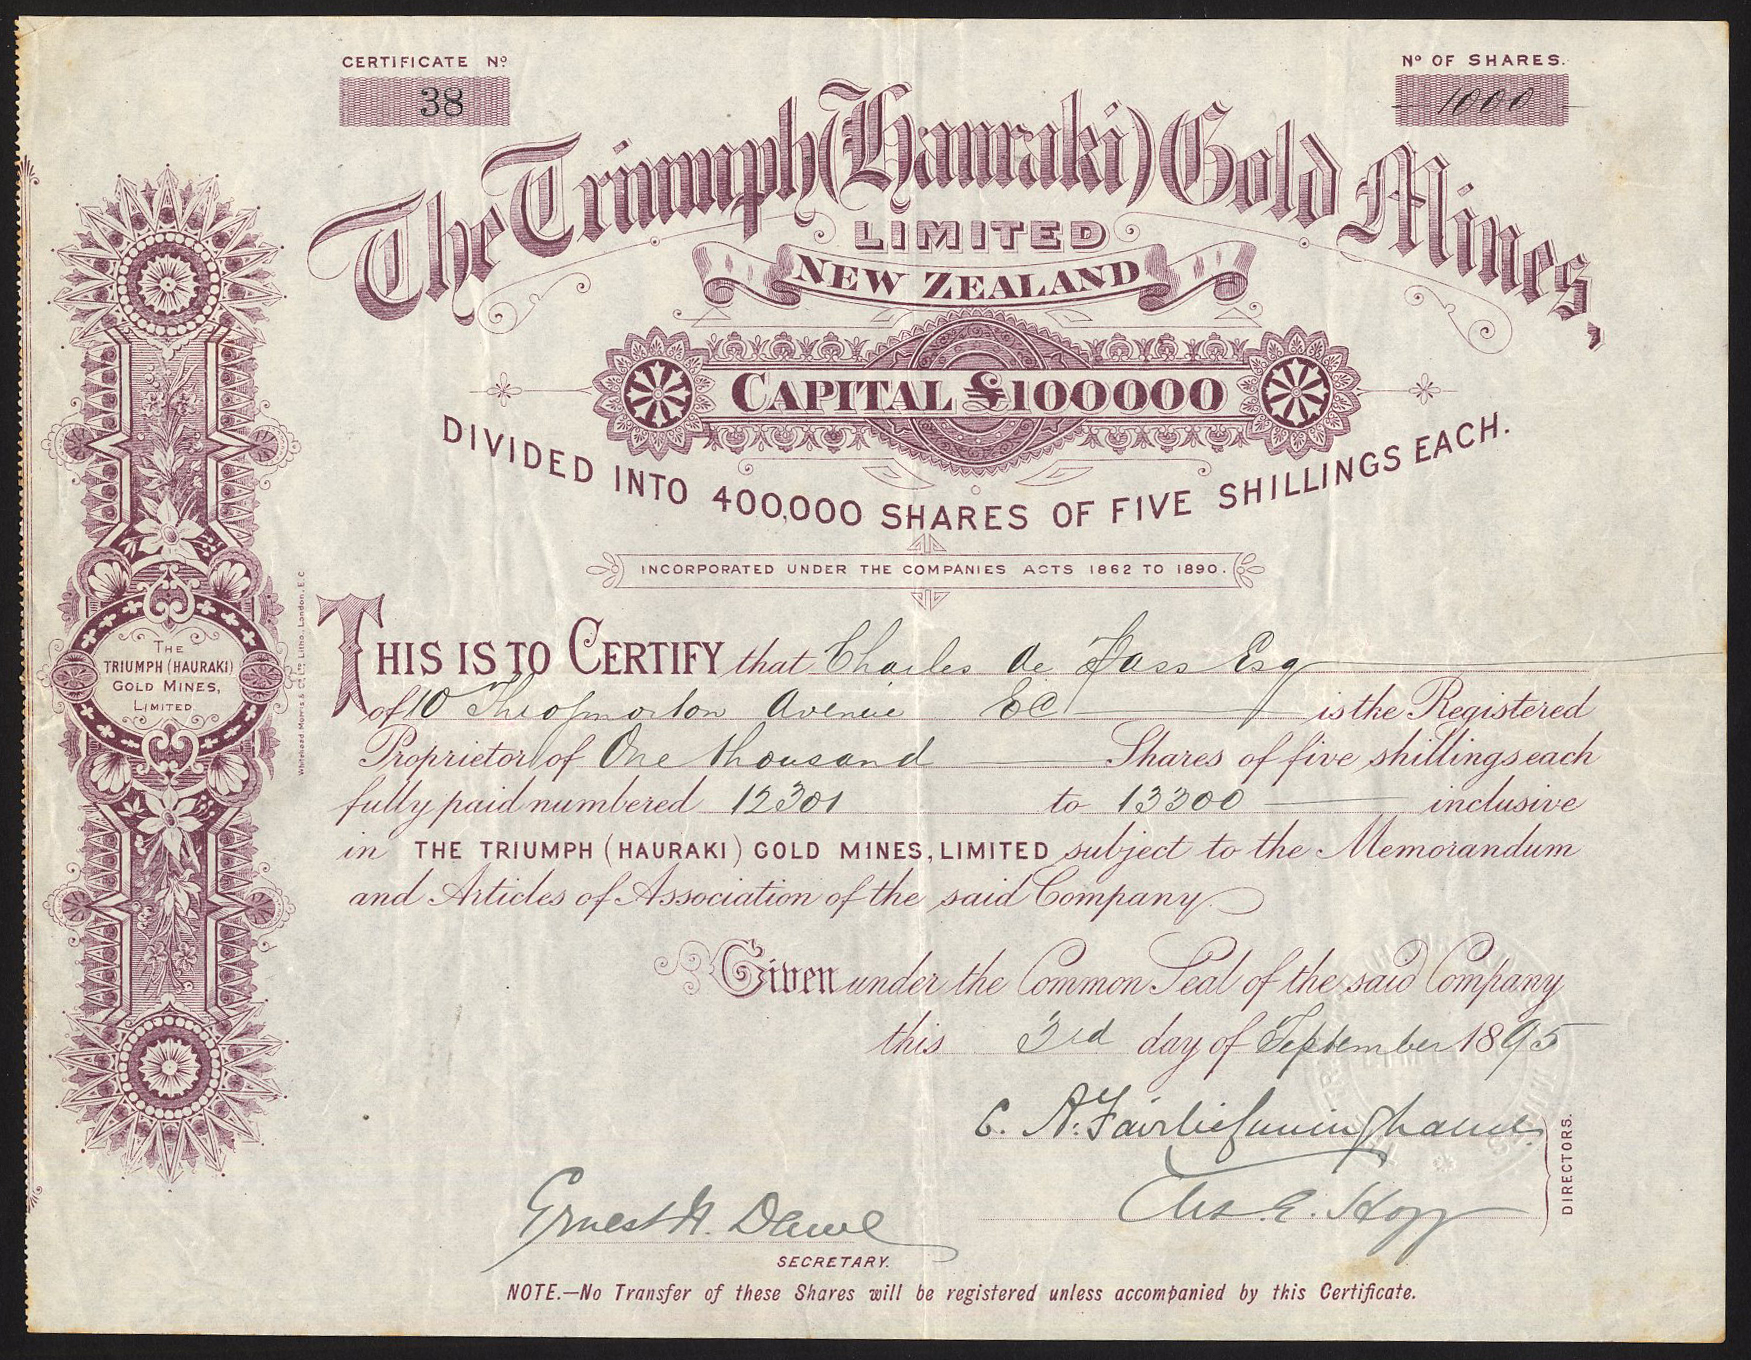 CERTIFICATE Nº
38
Nº OF SHARES.
1000
The Triumph (Hauraki) Gold Mines,
LIMITED
NEW ZEALAND
CAPITAL £100000
DIVIDED INTO 400,000 SHARES OF FIVE SHILLINGS EACH.
INCORPORATED UNDER THE COMPANIES ACTS 1862 TO 1890.
THIS IS TO CERTIFY that Charles de Pass Esq
of 10 Throgmorton Avenue EC is the Registered
Proprietor of One thousand Shares of five shillings each
fully paid numbered 12301 to 13300 inclusive
in THE TRIUMPH (HAURAKI) GOLD MINES, LIMITED subject to the Memorandum
and Articles of Association of the said Company.
Given under the Common Seal of the said Company
this 3rd day of September 1895
C. A. Fairlie Cuninghame
Chs. E. Hogg
DIRECTORS.
Ernest H. Dawe
SECRETARY.
NOTE.—No Transfer of these Shares will be registered unless accompanied by this Certificate.
THE
TRIUMPH (HAURAKI)
GOLD MINES,
LIMITED.
Whitehead Morris & Co Ltd Litho. London, E.C.